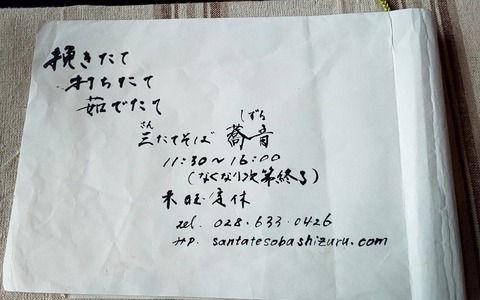 挽きたて
打ちたて
茹でたて
さん しずる
三たてそば 蕎音
11:30～16:00
(なくなり次第終了)
木曜定休
tel. 028.633.0426
HP. santatesobashizuru.com